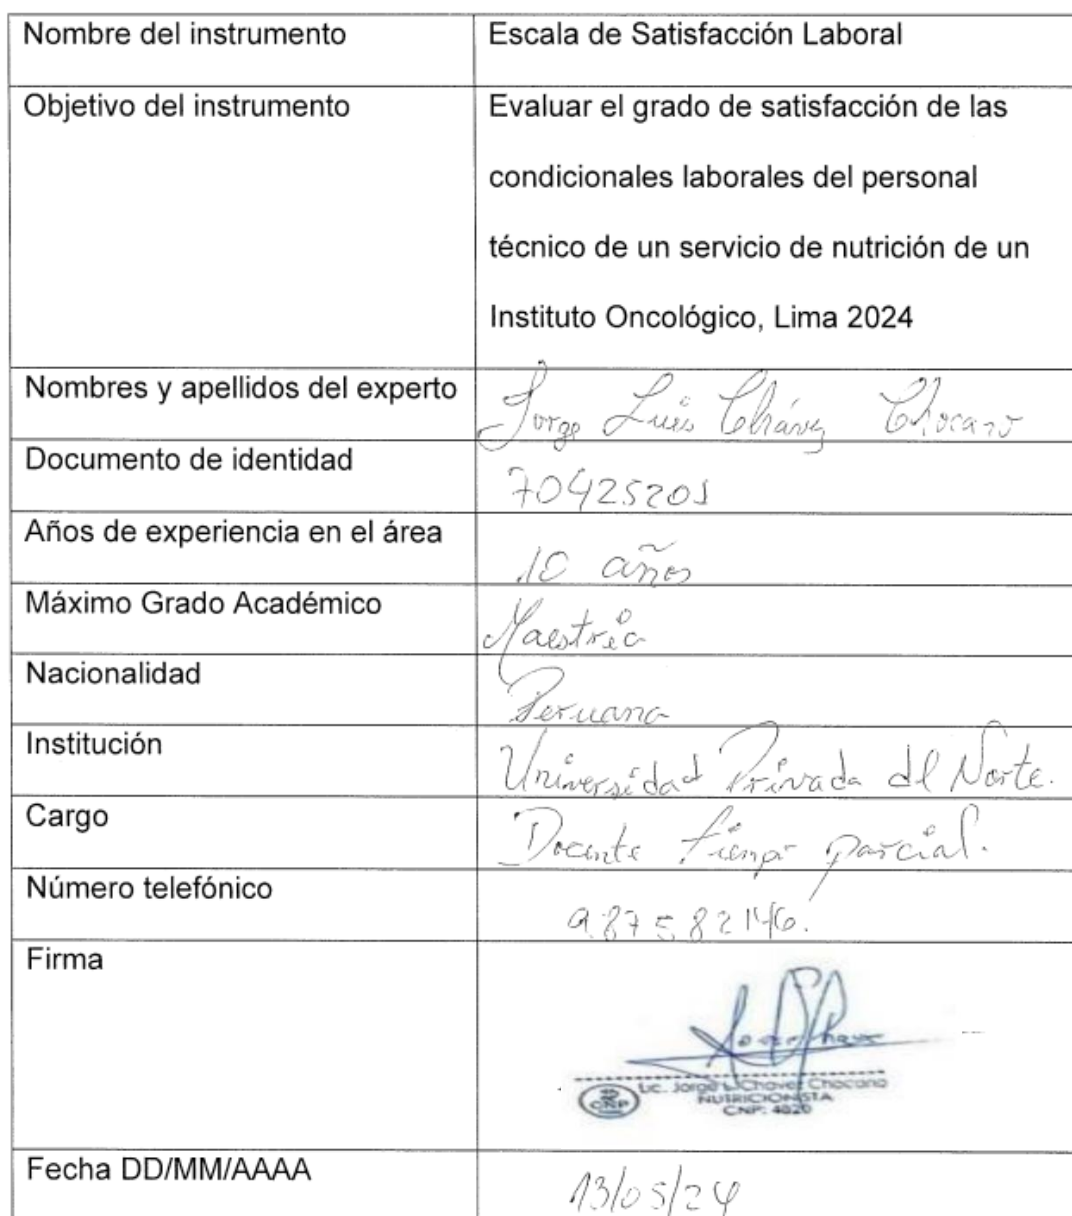 Nombre del instrumento
Escala de Satisfacción Laboral
Objetivo del instrumento
Evaluar el grado de satisfacción de las
condicionales laborales del personal
técnico de un servicio de nutrición de un
Instituto Oncológico, Lima 2024
Nombres y apellidos del experto
Jorge Luis Chávez Chocano
Documento de identidad
70425201
Años de experiencia en el área
10 años
Máximo Grado Académico
Maestría
Nacionalidad
Peruana
Institución
Universidad Privada del Norte.
Cargo
Docente tiempo parcial.
Número telefónico
987582146.
Firma
Lic. Jorge L. Chavez Chocano
NUTRICIONISTA
CNP: 4820
CNP
Fecha DD/MM/AAAA
13/05/24